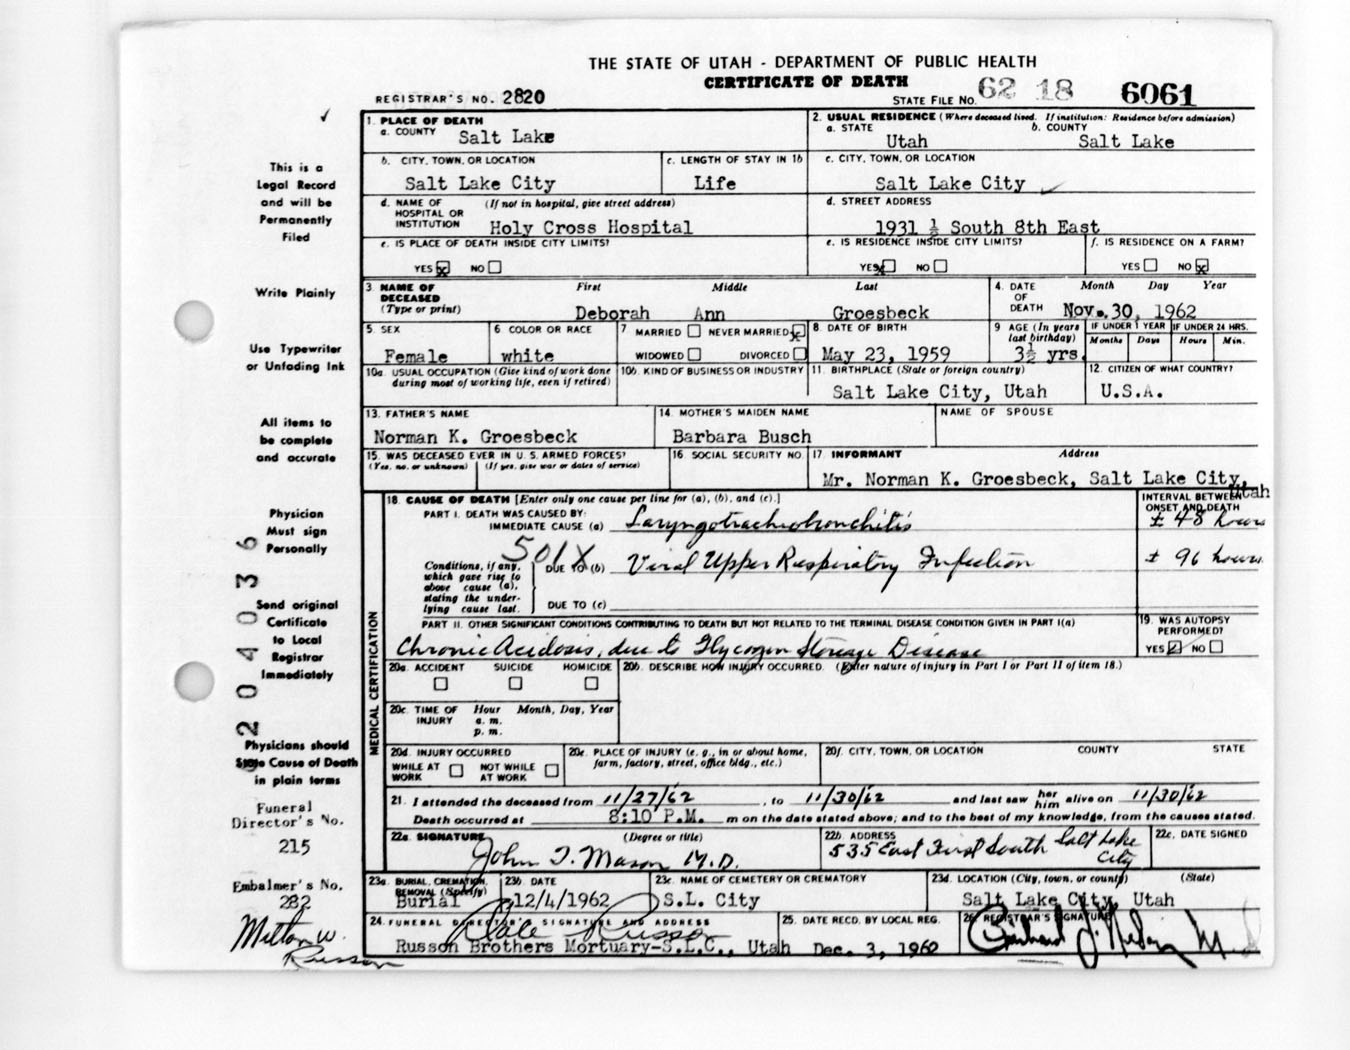 THE STATE OF UTAH - DEPARTMENT OF PUBLIC HEALTH
CERTIFICATE OF DEATH
REGISTRAR'S NO. 2820
STATE FILE NO. 62 18 6061
This is a
Legal Record
and will be
Permanently
Filed
Write Plainly
Use Typewriter
or Unfading Ink
All items to
be complete
and accurate
Physician
Must sign
Personally
Send original
Certificate
to Local
Registrar
Immediately
Physicians should
State Cause of Death
in plain terms
Funeral
Director's No.
215
Embalmer's No.
282
Milton W.
Russon
1. PLACE OF DEATH
a. COUNTY Salt Lake
2. USUAL RESIDENCE (Where deceased lived. If institution: Residence before admission)
a. STATE Utah b. COUNTY Salt Lake
b. CITY, TOWN, OR LOCATION Salt Lake City
c. LENGTH OF STAY IN 1b Life
c. CITY, TOWN, OR LOCATION Salt Lake City
d. NAME OF HOSPITAL OR INSTITUTION (If not in hospital, give street address) Holy Cross Hospital
d. STREET ADDRESS 1931 ½ South 8th East
e. IS PLACE OF DEATH INSIDE CITY LIMITS? YES x NO
e. IS RESIDENCE INSIDE CITY LIMITS? YES x NO
f. IS RESIDENCE ON A FARM? YES NO x
3. NAME OF DECEASED (Type or print) First Middle Last
Deborah Ann Groesbeck
4. DATE OF DEATH Month Day Year
Nov. 30, 1962
5. SEX Female
6 COLOR OR RACE white
7 MARRIED NEVER MARRIED x WIDOWED DIVORCED
8. DATE OF BIRTH May 23, 1959
9 AGE (In years last birthday) 3½ yrs.
IF UNDER 1 YEAR Months Days
IF UNDER 24 HRS. Hours Min.
10a. USUAL OCCUPATION (Give kind of work done during most of working life, even if retired)
10b. KIND OF BUSINESS OR INDUSTRY
11. BIRTHPLACE (State or foreign country) Salt Lake City, Utah
12. CITIZEN OF WHAT COUNTRY? U.S.A.
13. FATHER'S NAME Norman K. Groesbeck
14. MOTHER'S MAIDEN NAME Barbara Busch
NAME OF SPOUSE
15. WAS DECEASED EVER IN U.S. ARMED FORCES? (Yes, no, or unknown) (If yes, give war or dates of service)
16 SOCIAL SECURITY NO.
17. INFORMANT Address
Mr. Norman K. Groesbeck, Salt Lake City, Utah
MEDICAL CERTIFICATION
18. CAUSE OF DEATH [Enter only one cause per line for (a), (b), and (c).]
INTERVAL BETWEEN ONSET AND DEATH
PART I. DEATH WAS CAUSED BY:
IMMEDIATE CAUSE (a) Laryngotracheobronchitis ± 48 hours
501X
Conditions, if any, which gave rise to above cause (a), stating the underlying cause last.
DUE TO (b) Viral Upper Respiratory Infection ± 96 hours
DUE TO (c)
PART II. OTHER SIGNIFICANT CONDITIONS CONTRIBUTING TO DEATH BUT NOT RELATED TO THE TERMINAL DISEASE CONDITION GIVEN IN PART I(a)
Chronic Acidosis, due to Glycogen Storage Disease
19. WAS AUTOPSY PERFORMED? YES ✓ NO
20a. ACCIDENT SUICIDE HOMICIDE
20b. DESCRIBE HOW INJURY OCCURRED. (Enter nature of injury in Part I or Part II of item 18.)
20c. TIME OF INJURY Hour a. m. p. m. Month, Day, Year
20d. INJURY OCCURRED WHILE AT WORK NOT WHILE AT WORK
20e. PLACE OF INJURY (e. g., in or about home, farm, factory, street, office bldg., etc.)
20f. CITY, TOWN, OR LOCATION COUNTY STATE
21. I attended the deceased from 11/27/62, to 11/30/62 and last saw her him alive on 11/30/62
Death occurred at 8:10 P.M. m on the date stated above; and to the best of my knowledge, from the causes stated.
22a. SIGNATURE (Degree or title) John T. Mason M.D.
22b. ADDRESS 535 East First South Salt Lake City
22c. DATE SIGNED
23a. BURIAL, CREMATION, REMOVAL (Specify) Burial
23b. DATE 12/4/1962
23c. NAME OF CEMETERY OR CREMATORY S.L. City
23d. LOCATION (City, town, or county) (State) Salt Lake City, Utah
24. FUNERAL DIRECTOR'S SIGNATURE AND ADDRESS
Dale Russon
Russon Brothers Mortuary-S.L.C., Utah
25. DATE RECD. BY LOCAL REG. Dec. 3, 1962
26. REGISTRAR'S SIGNATURE